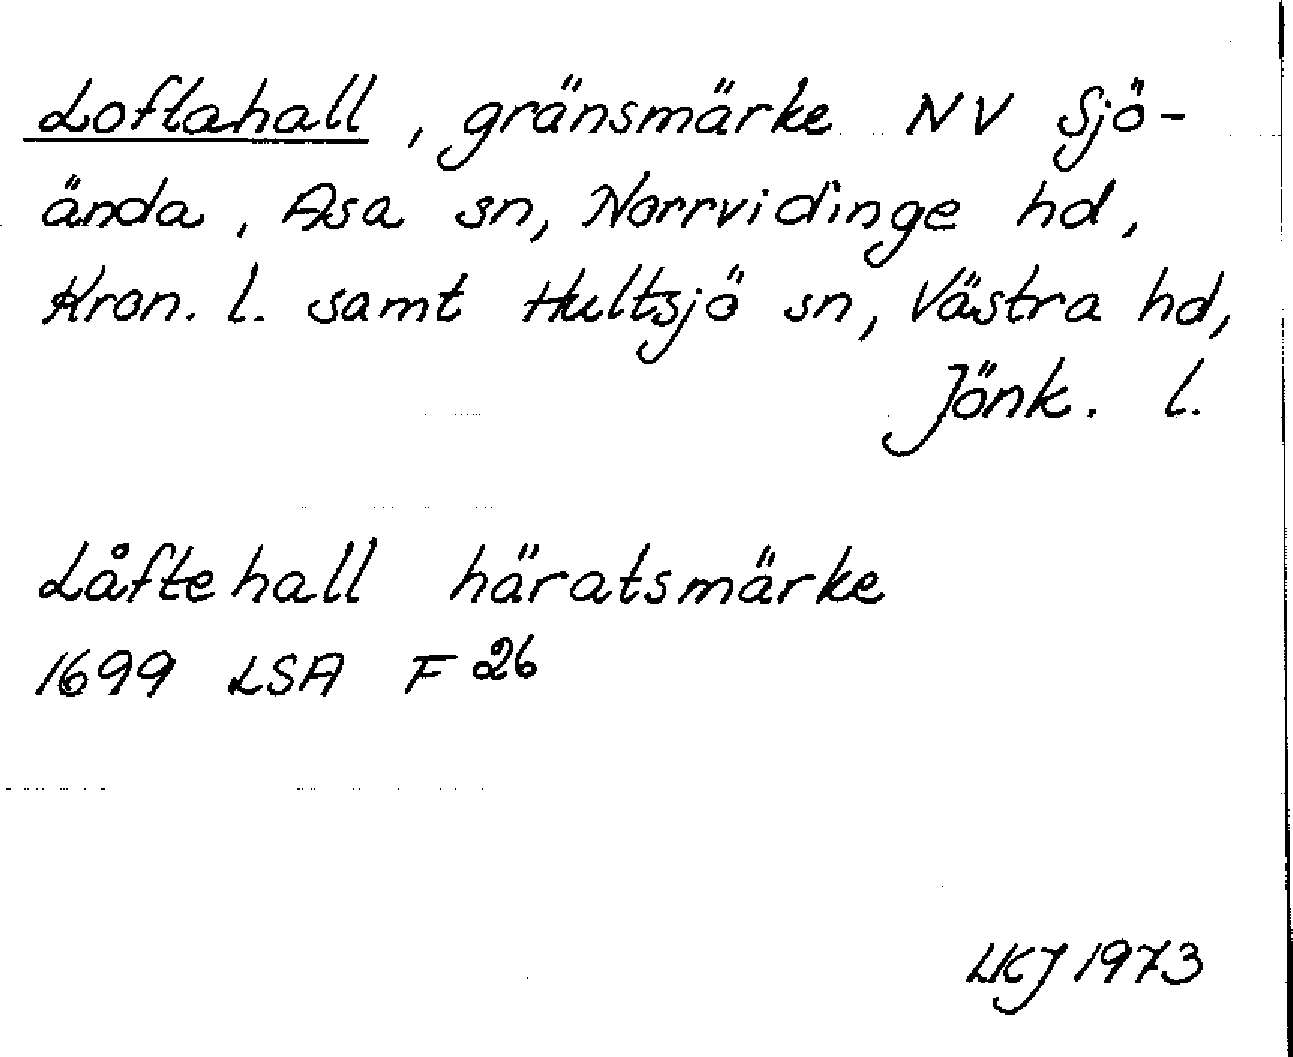 Loftahall, gränsmärke NV Sjö-
ända, Asa sn, Norrvidinge hd,
Kron. l. samt Hultsjö sn, Västra hd,
Jönk. l.
Låftehall häratsmärke
1699 LSA F 26
LKJ 1973